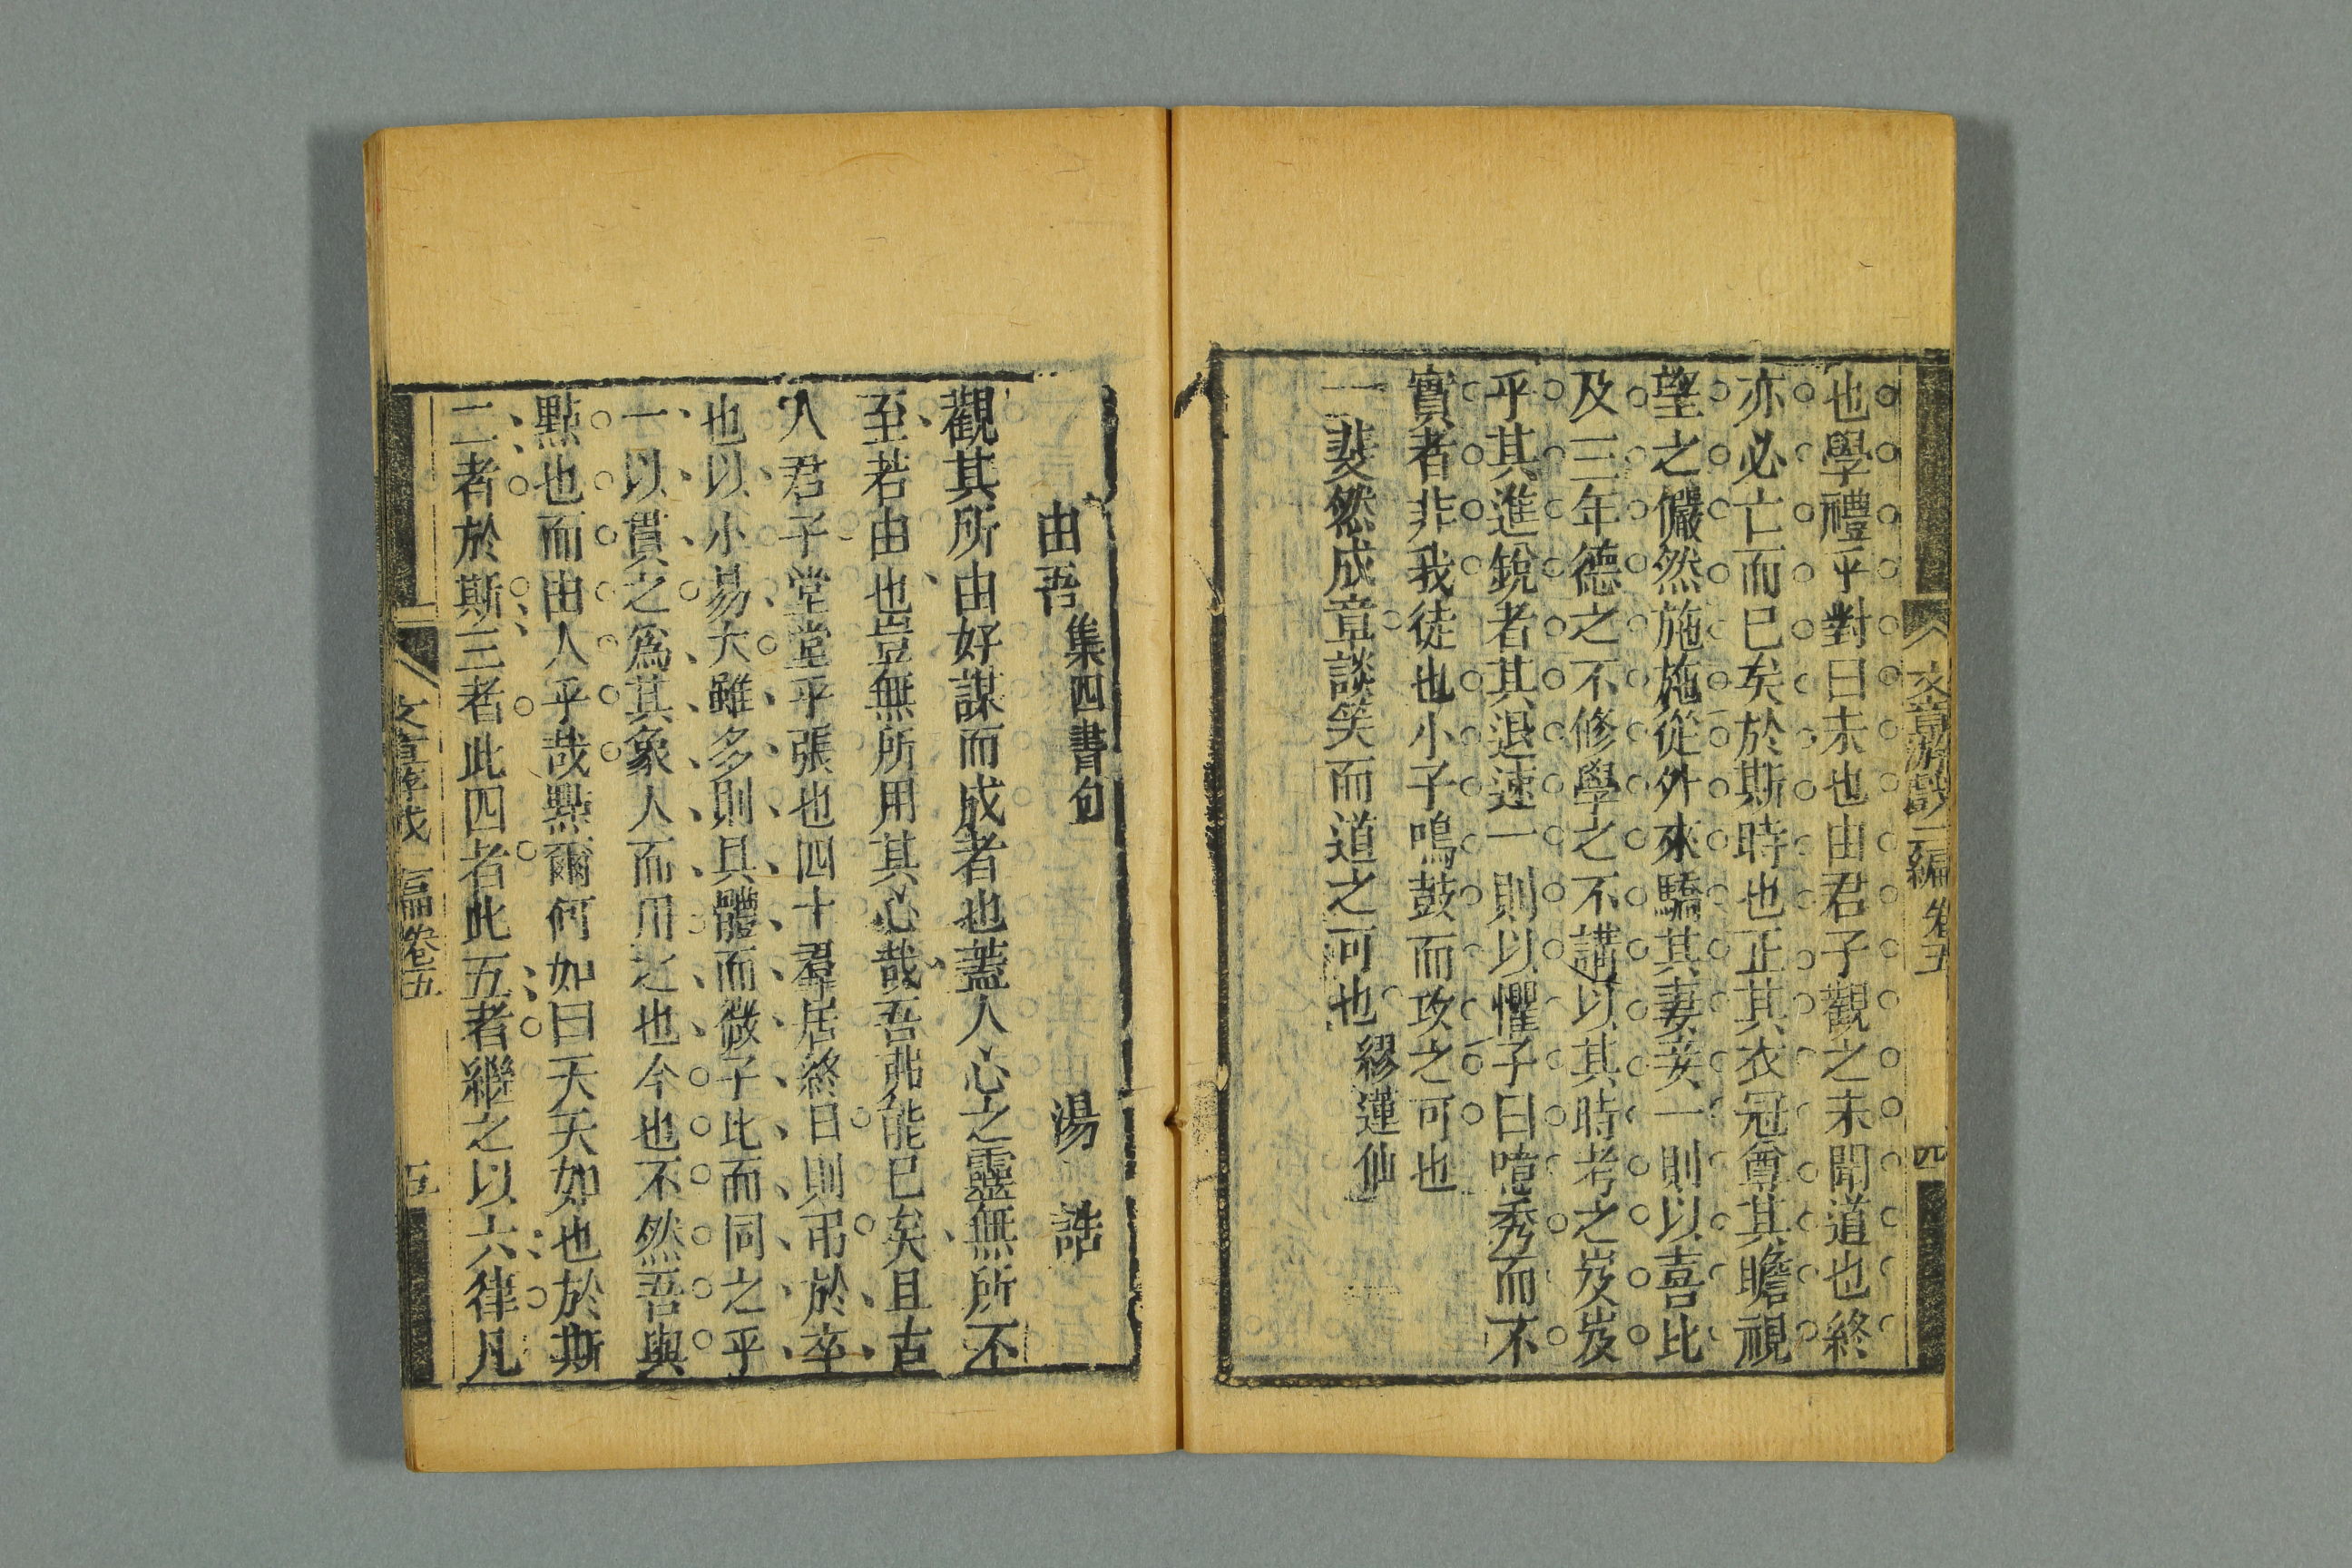 文章游戲二編 卷五 四
也學禮乎對曰未也由君子觀之未聞道也終
亦必亡而已矣於斯時也正其衣冠尊其瞻視
望之儼然施施從外來驕其妻妾一則以喜比
及三年德之不修學之不講以其時考之岌岌
乎其進銳者其退速一則以懼子曰噫秀而不
實者非我徒也小子鳴鼓而攻之可也
一斐然成章談笑而道之可也 繆蓮仙
由吾 集四書句 湯誥
觀其所由好謀而成者也蓋人心之靈無所不
至若由也豈無所用其心哉吾弗能已矣且古
人君子堂堂乎張也四十羣居終日則弔於卒
也以小易大雖多則具體而微子比而同之乎
一以貫之爲其象人而用之也今也不然吾與
點也而由人乎哉點爾何如曰夭夭如也於斯
二者於斯三者此四者此五者繼之以六律凡
文章 編卷五 五